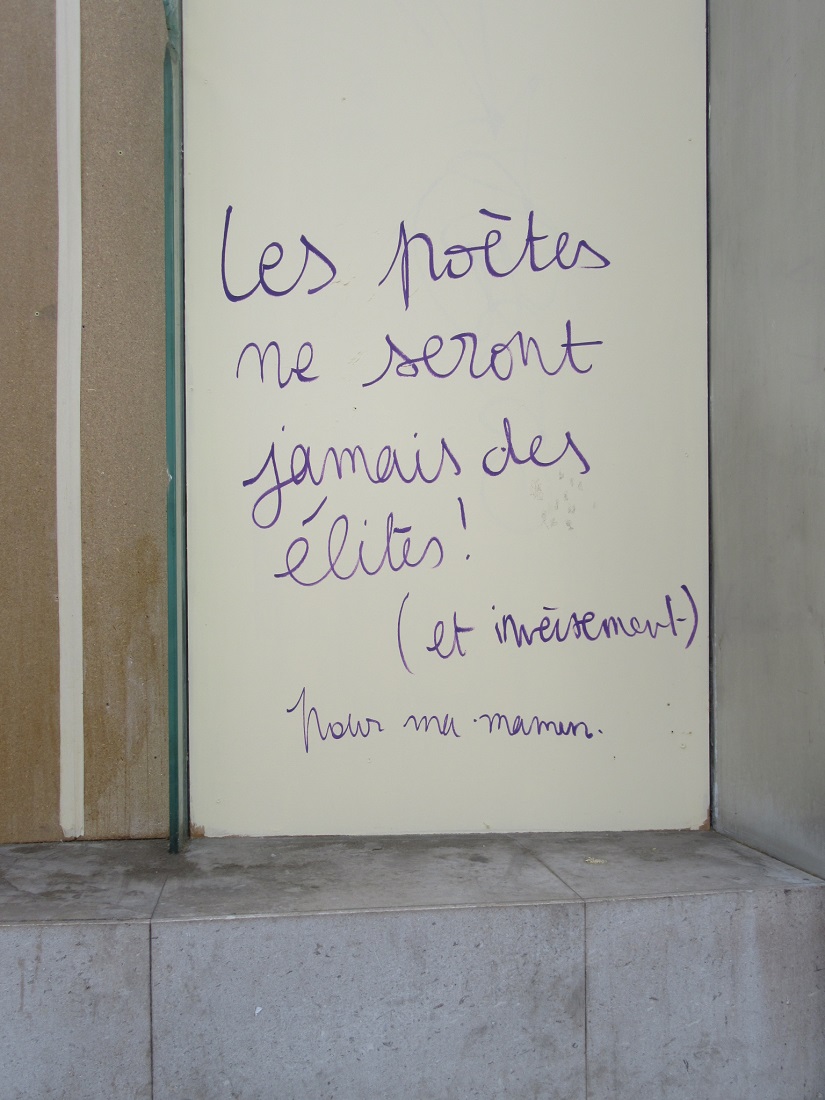 Les poètes
ne seront
jamais des
élites!
(et inversement)
Pour ma maman.